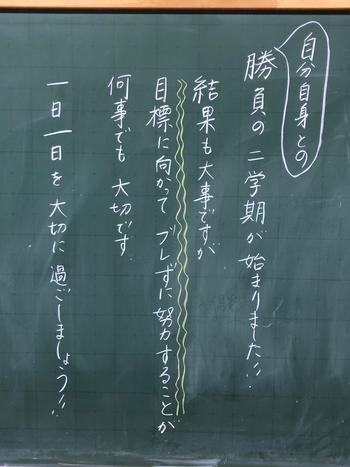 自分自身との
勝負の二学期が始まりました!!
結果も大事ですが
目標に向かってブレずに努力することが
何事でも大切です
一日一日を大切に過ごしましょう!!